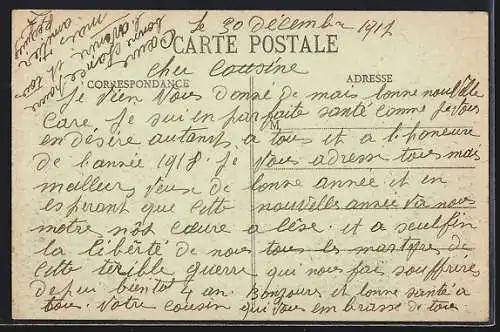 le 30 Décembre 1917
CARTE POSTALE
CORRESPONDANCE
ADRESSE
Cher Cousine
Je vien vous donné de mais bonne nouvélle
Care Je sui en parfaite santé comme Je vous
M
en désire autant a tous et a l'honeure
de l'année 1918. Je vous adresse tous mais
meilleur veux de bonne année et en
esperant que cette nouvelles année vera nous
metre nôs cœure a l'ése. et a seul fin
la libérté de nous tous les martyre de
cette térible guerre qui nous fai souffrires
depui bientot 4 an. Bonjoures et bonne santé a
tous. Votre cousin qui vous embrasse de tous
Cœur
bonne